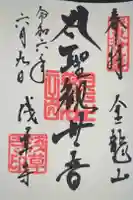 奉拝
金龍山
大聖観世音
浅草寺
令和六年
六月九日